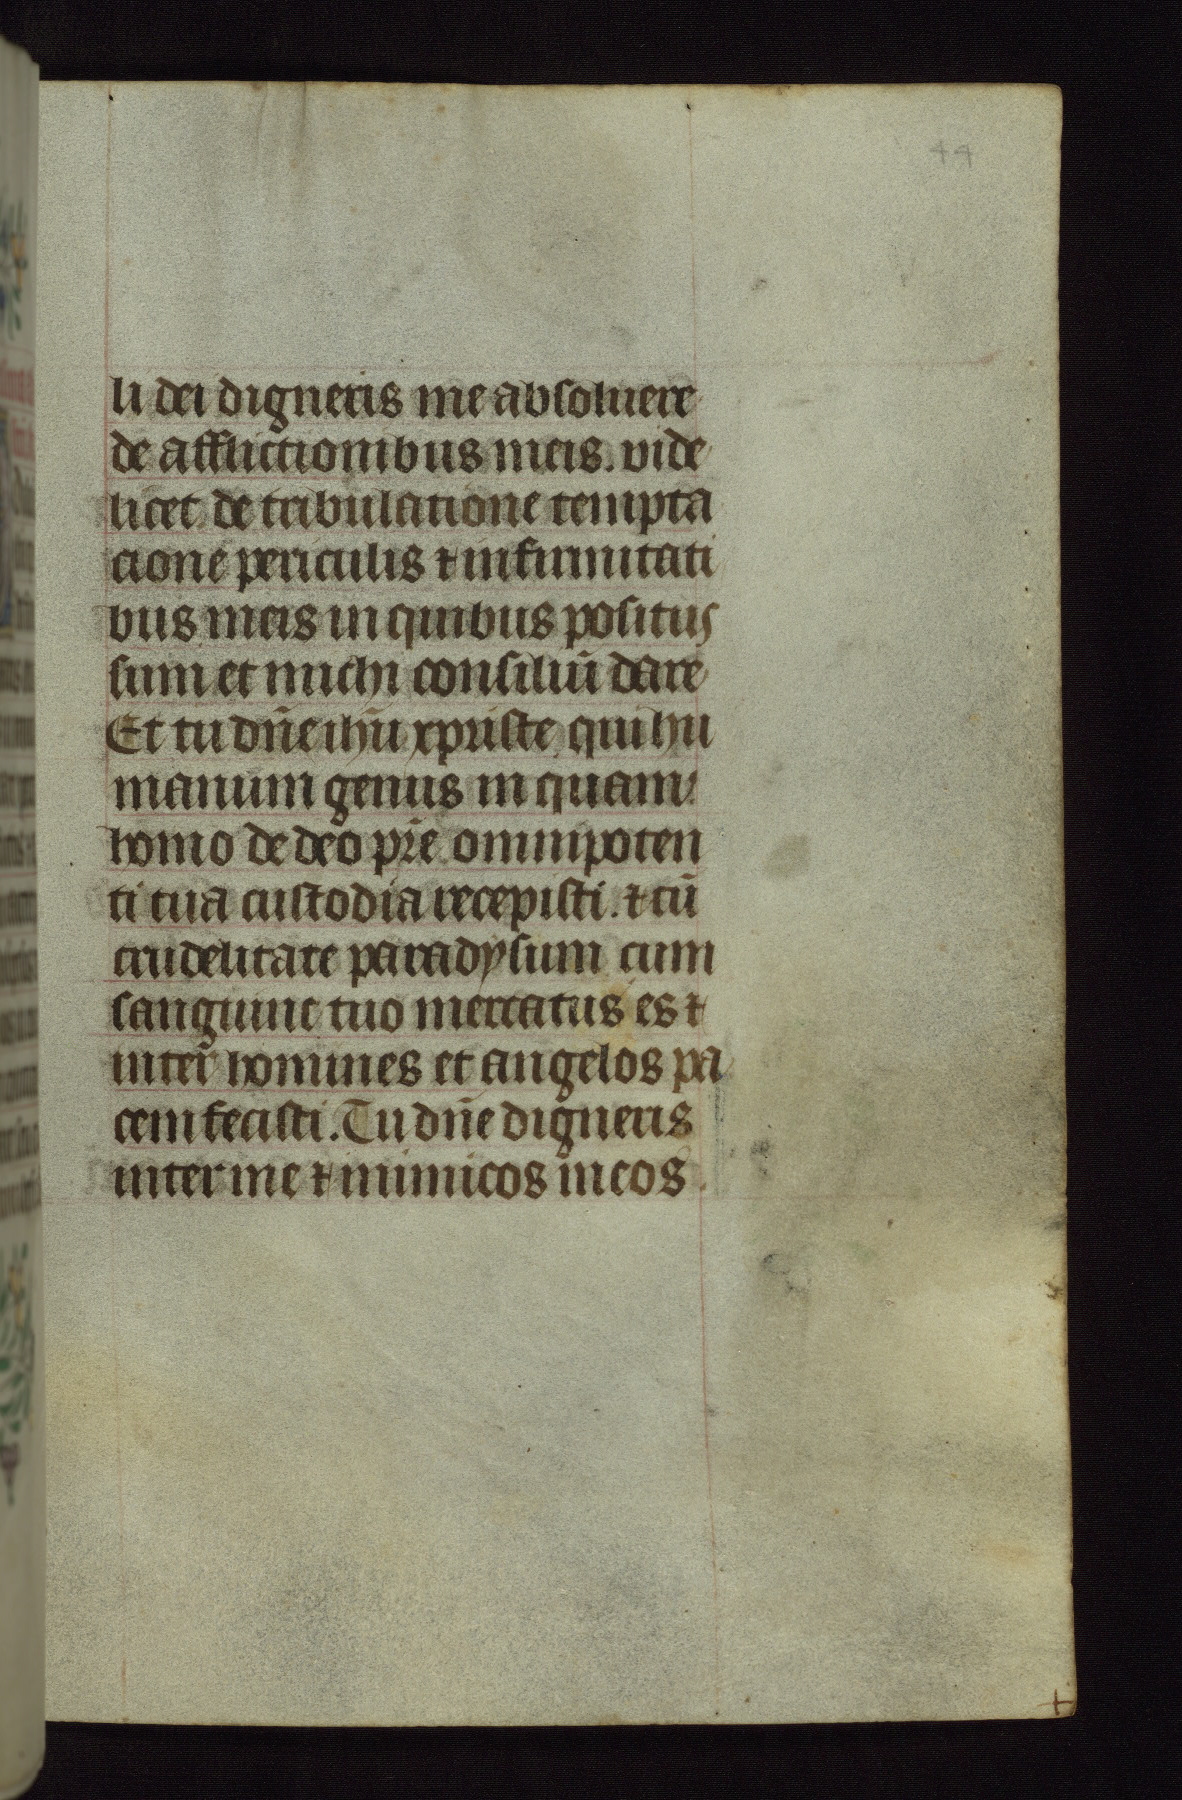 44
li dei digneris me absoluere
de afflictionibus meis. vide
licet de tribulatione tempta
cione periculis ⁊ infirmitati
bus meis in quibus positus
sum et michi consiliū dare
Et tu dn̄e ihū xpriste qui hu
manum genus in quam
homo de deo pr̄e omnipoten
ti tua custodia recepisti. ⁊ cū
crudelitate paradysum cum
sanguine tuo mercatus es ⁊
inter homines et angelos pa
cem fecisti. Tu dn̄e digneris
inter me ⁊ inimicos meos.